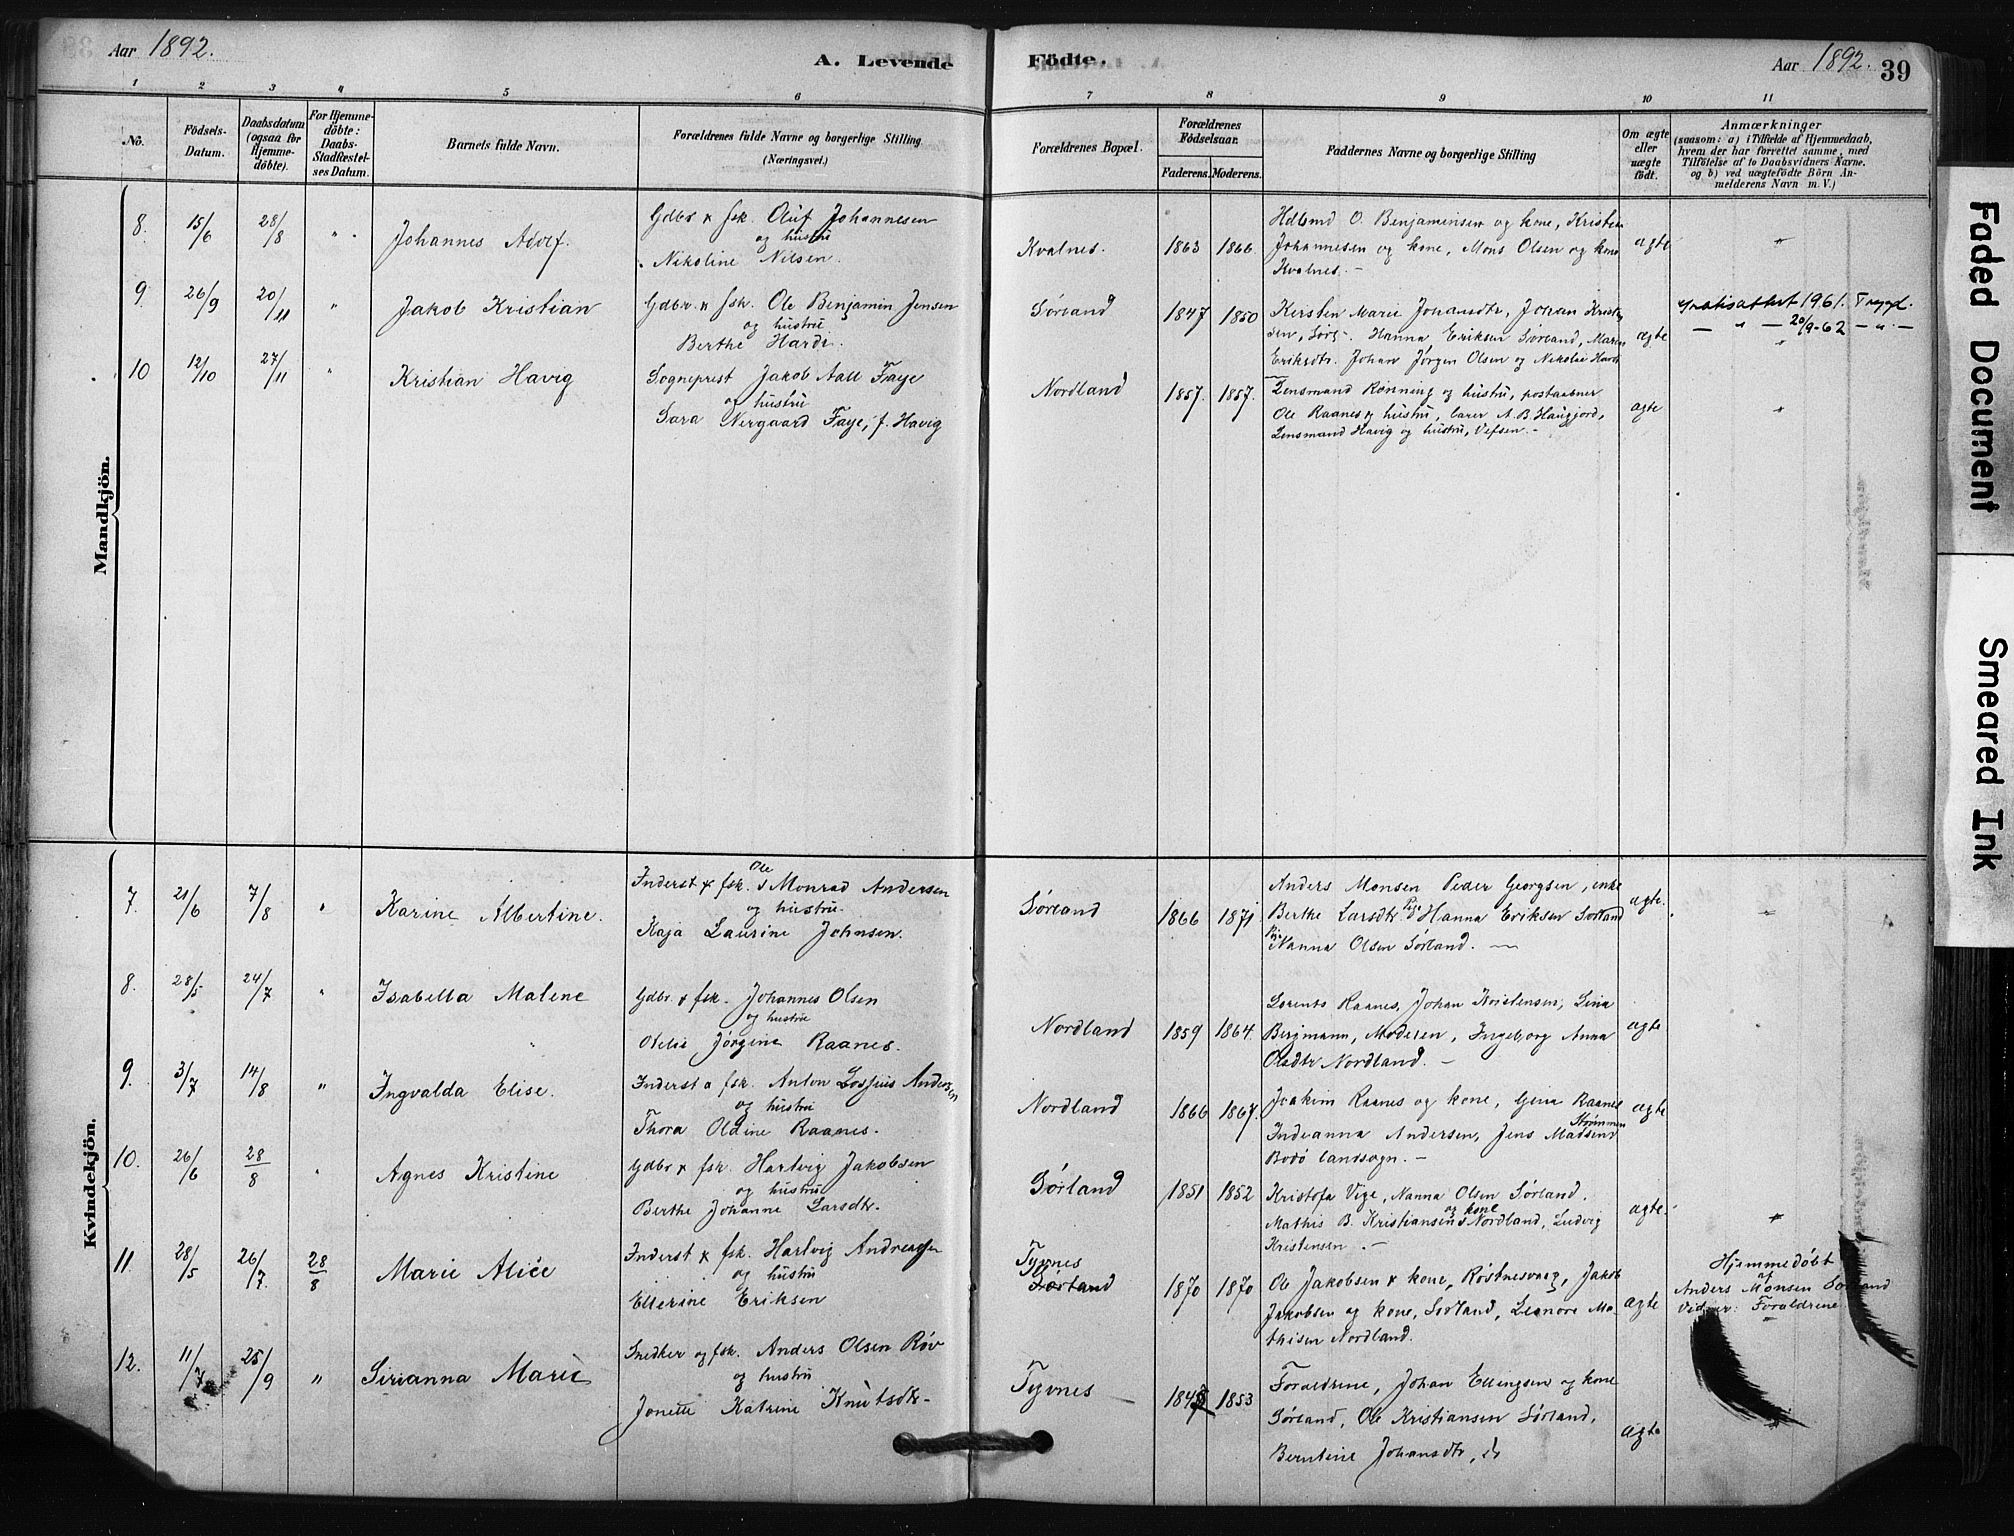 Aar 1892.
A. Levende
Födte.
Aar 1892.
39
1 2 3 4 5 6 7 8 9 10 11
No.
Födsels-
Datum.
Daabsdatum
(ogsaa for
Hjemme-
döbte).
For Hjemme-
döbte:
Daabs-
Stadfæstel-
ses Datum.
Barnets fulde Navn.
Forældrenes fulde Navne og borgerlige Stilling
(Næringsvei.)
Forældrenes Bopæl.
Forældrenes
Födselsaar.
Faderens. Moderens.
Faddernes Navne og borgerlige Stilling
Om ægte
eller
uægte
födt.
Anmærkninger
(saasom: a) i Tilfælde af Hjemmedaab,
hvem der har forrettet samme, med
Tilföielse af to Daabsvidners Navne.
og b) ved uægtefödte Börn An-
melderens Navn m. V.)
Mandkjön.
8. 15/6 28/8 " Johannes Adolf.
Gdbr & fsk. Oluf Johannesen
og hustru
Nikoline Nilsen.
Kvalnes. 1863 1866
O. Benjaminsen og kone, Kristian
Johannesen og kone, Mons Olsen og kone
Kvalnes. -
ægte "
9 26/9 20/11 " Jakob Kristian
Gdbr. & fsk. Ole Benjamin Jensen
og hustru
Berthe Hardi.
Sörland 1847 1850
Kersten Marie Johansdtr, Johan Krist
sen, Sörl. Hanna Eriksen Sørland, Maren
Eriksdtr. Johan Jörgen Olsen og Nikolai
ægte
Gratisattest 1961. Trygd.
— " — 20/9-62 — " —
"
10 12/10 27/11 " Kristian Havig
Sogneprest Jakob Aall Faye
og hustru
Sara Nergaard Faye, f. Havig
Nordland 1857. 1857.
Lensmand Rönning og hustru, postaabner
Ole Raanes & hustru, lærer A. B. Haugjord,
Lensmand Havig og hustru, Vefsen. -
ægte "
Kvindekjön.
7. 21/6 7/8 " Karine Albertine.
Ole
Inderst & fsk. Monrad Andersen
og hustru
Kaja Laurine Johnsen.
Sörland 1866 1871
Anders Monsen Peder Georgsen, enke
Berthe Larsdtr Pige Hanna Eriksen Sørland
Pige Nanna Olsen Sørland. —
ægte. "
8. 28/5 24/7 " Isabella Malene
Gdbr. & fsk. Johannes Olsen
og hustru
Otelie Jørgine Raanes.
Nordland 1859 1864.
Lorents Raanes, Johan Kristensen, Lina
Bergmann, Moderen, Ingeborg Anna
Olsdtr Nordland. -
ægte
9. 3/7 14/8 " Ingvalda Elise.
Inderst & fsk. Anton Lossius Andersen
og hustru
Thora Oldine Raanes.
Nordland 1866 1867.
Joakim Raanes og kone, Gena Raanes
Strömmen
Indianna Andersen, Jens Madsen
Bodö landsogn. -
ægte
10. 26/6 28/8 " Agnes Kristine
Gdbr & fsk. Hartvig Jakobsen
og hustru
Berthe Johanne Larsdtr.
Sørland 1851 1852
Kristofa Vige, Nanna Olsen Sørland.
og kone
Mathis B. Kristiansen Nordland, Ludvig
Kristensen. -
ægte. "
11. 28/5 26/7. 28/8 Marie Alice
Inderst & fsk. Hartvig Andreasen
og hustru
Ellerine Eriksen
Tyvnes
Sørland 1870 1870
Ole Jakobsen & kone, Röstnesvaag, Jakob
Jakobsen og kone, Sørland, Leonore Ma-
thisen Nordland.
ægte
Hjemmedöbt
af
Anders Monsen Sørland
Vidner: Forældrene.
12. 11/7 25/9 " Sirianna Marie
Snedker og fsk. Anders Olsen Röv
og hustru
Jonette Katrine Knutsdtr.
Tyvnes 1848 1853
Forældrene, Johan Ellingsen og kone
Sørland, Ole Kristiansen Sørland,
Berntine Johansdtr, do
ægte
Faded Document
Smeared Ink